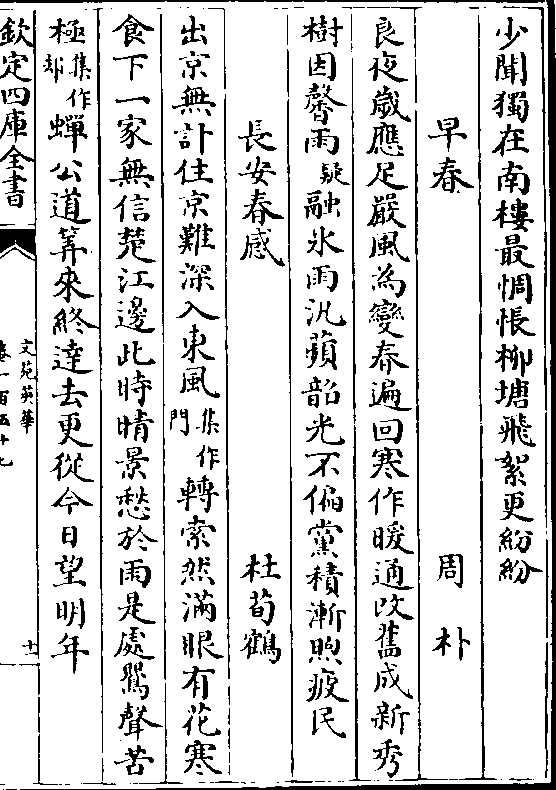 少聞獨在南樓最惆悵柳塘飛絮更紛紛
早春 周朴
良夜歲應足嚴風為變春遍回寒作暖通改舊成新秀
樹因馨雨疑融氷雨汎蘋韶光不偏黨積漸煦疲民
長安春感 杜荀鶴
出京無計住京難深入東風集作門轉索然滿眼有花寒
食下一家無信楚江邊此時晴景愁於雨是處鶯聲苦
極集作却蟬公道筭來終達去更從今日望明年
欽定四庫全書 文苑英華 卷一百五十七 十